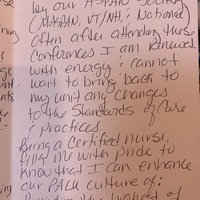 by our ASPAN Society
(MASPAN, VT/NH; National)
Often after attending these
Conferences I am renewed
with energy & cannot
wait to bring back to
my unit any changes
to the Standards of Care
& practices.
Being a certified nurse,
fills me with pride to
know that I can enhance
our PACU culture of: